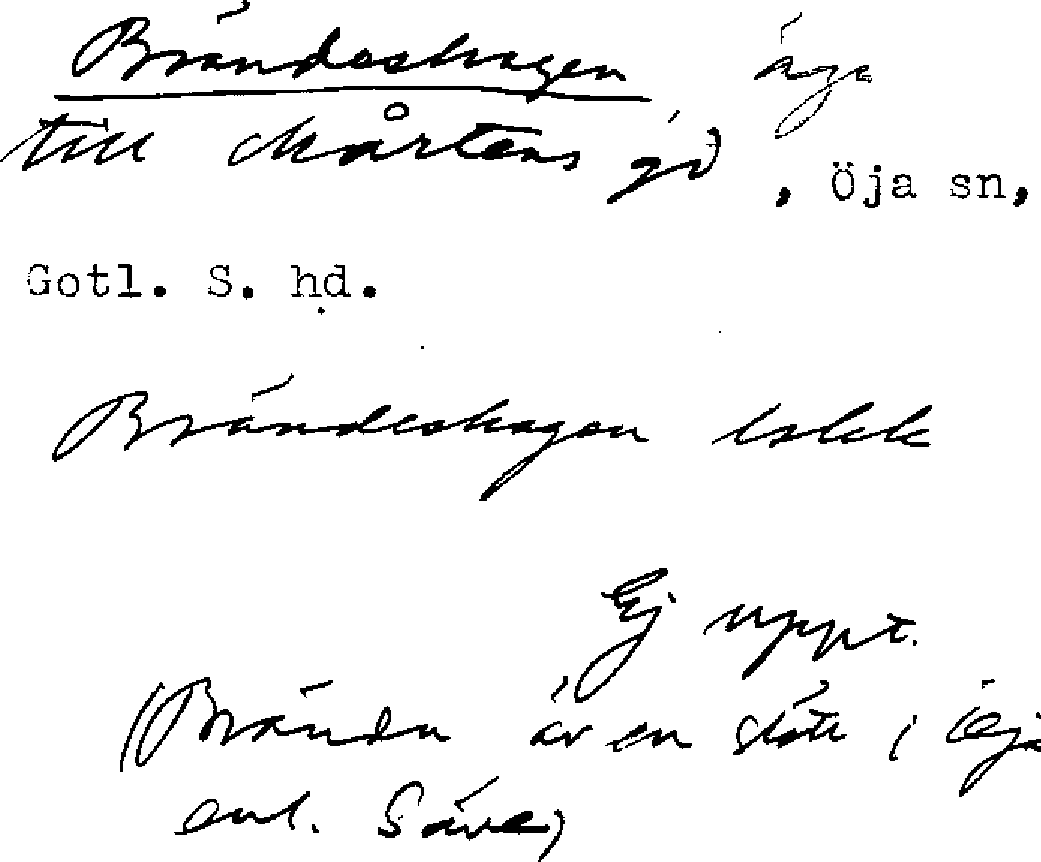 Brändeshagen äga
till Mårtens gd, Öja sn,
Gotl. S. hd.
Brändeshagen
Ej uppt.
(Brända är en slätt i Öja
enl. Säve)